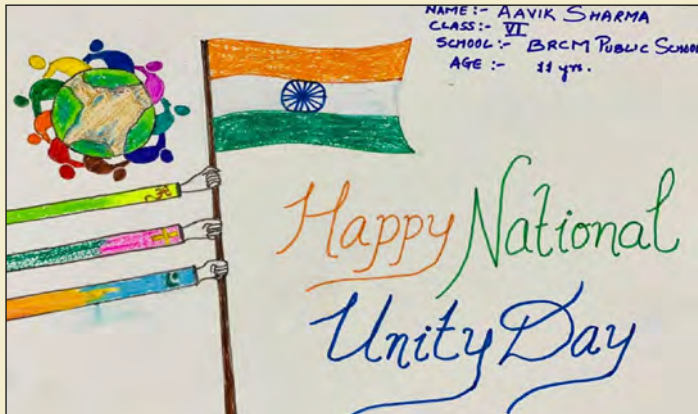 NAME:- AAVIK SHARMA
CLASS:- VI
SCHOOL:- BRCM PUBLIC SCHOOL
AGE:- 11 yrs.
Happy National
Unity Day